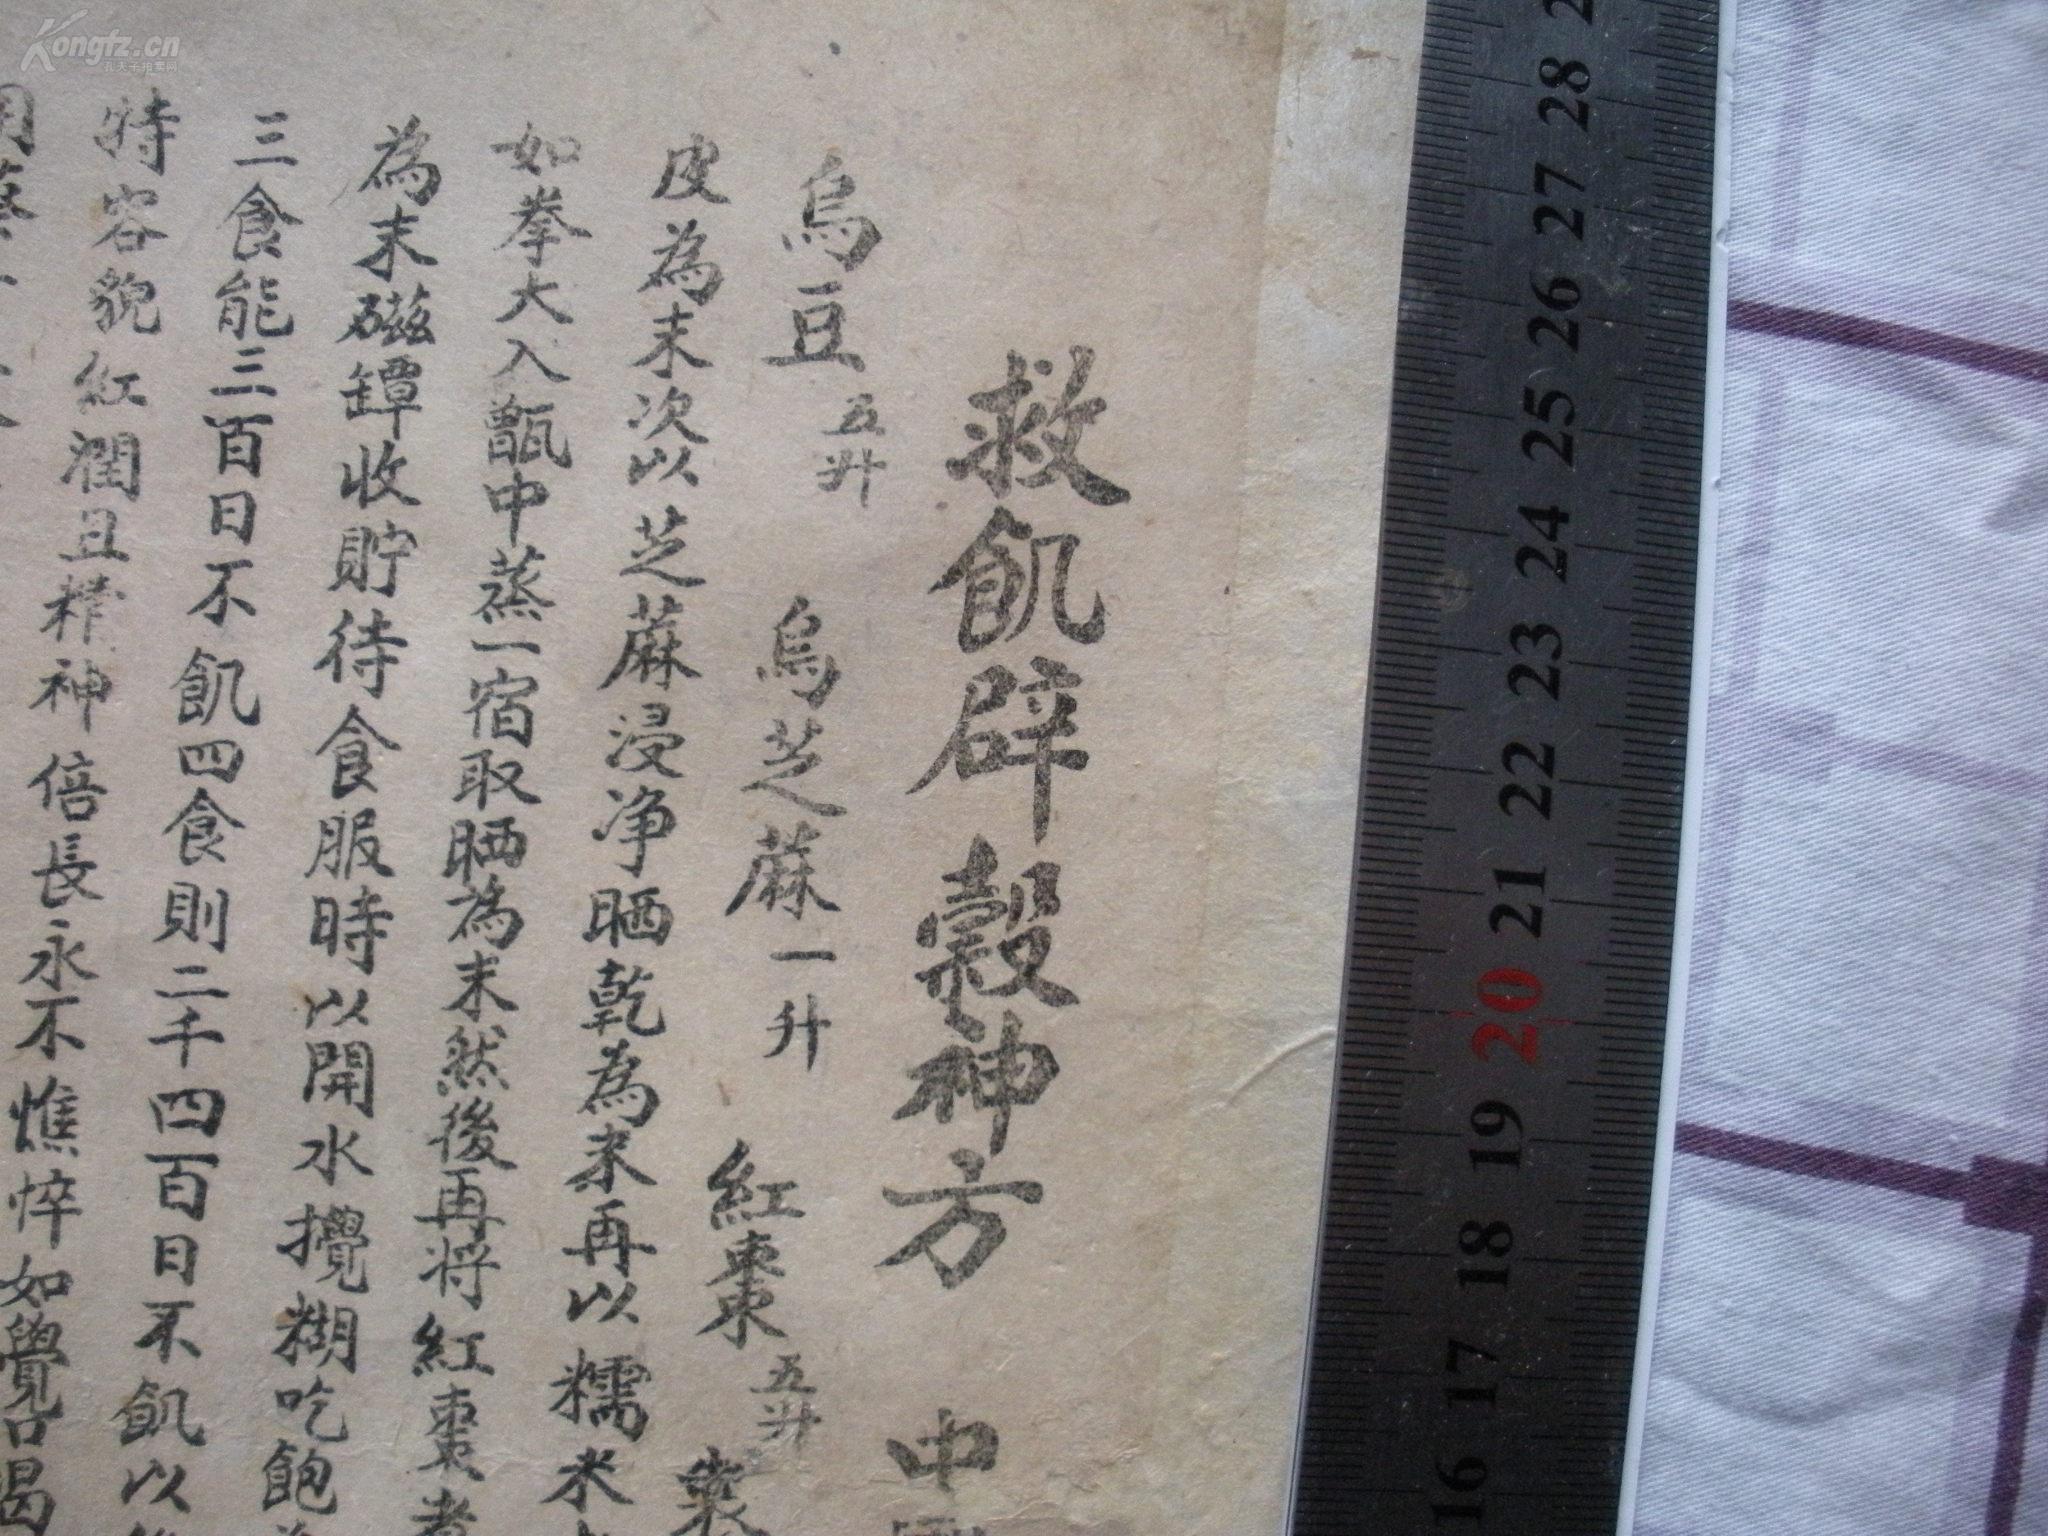 救飢辟穀神方 中
烏豆 五升 烏芝蔴一升 紅棗 五升
皮為末次以芝蔴浸净晒乾為末再以糯米
如拳大入甑中蒸一宿取晒為末然後再将紅棗煮
為末磁罈收貯待食服時以開水攪糊吃飽
三食能三百日不飢四食則二千四百日不飢以
特容貌紅潤且精神倍長永不憔悴如覺口渴
28
27
26
25
24
23
22
21
20
19
18
17
16
Kongfz.cn
孔夫子拍卖网